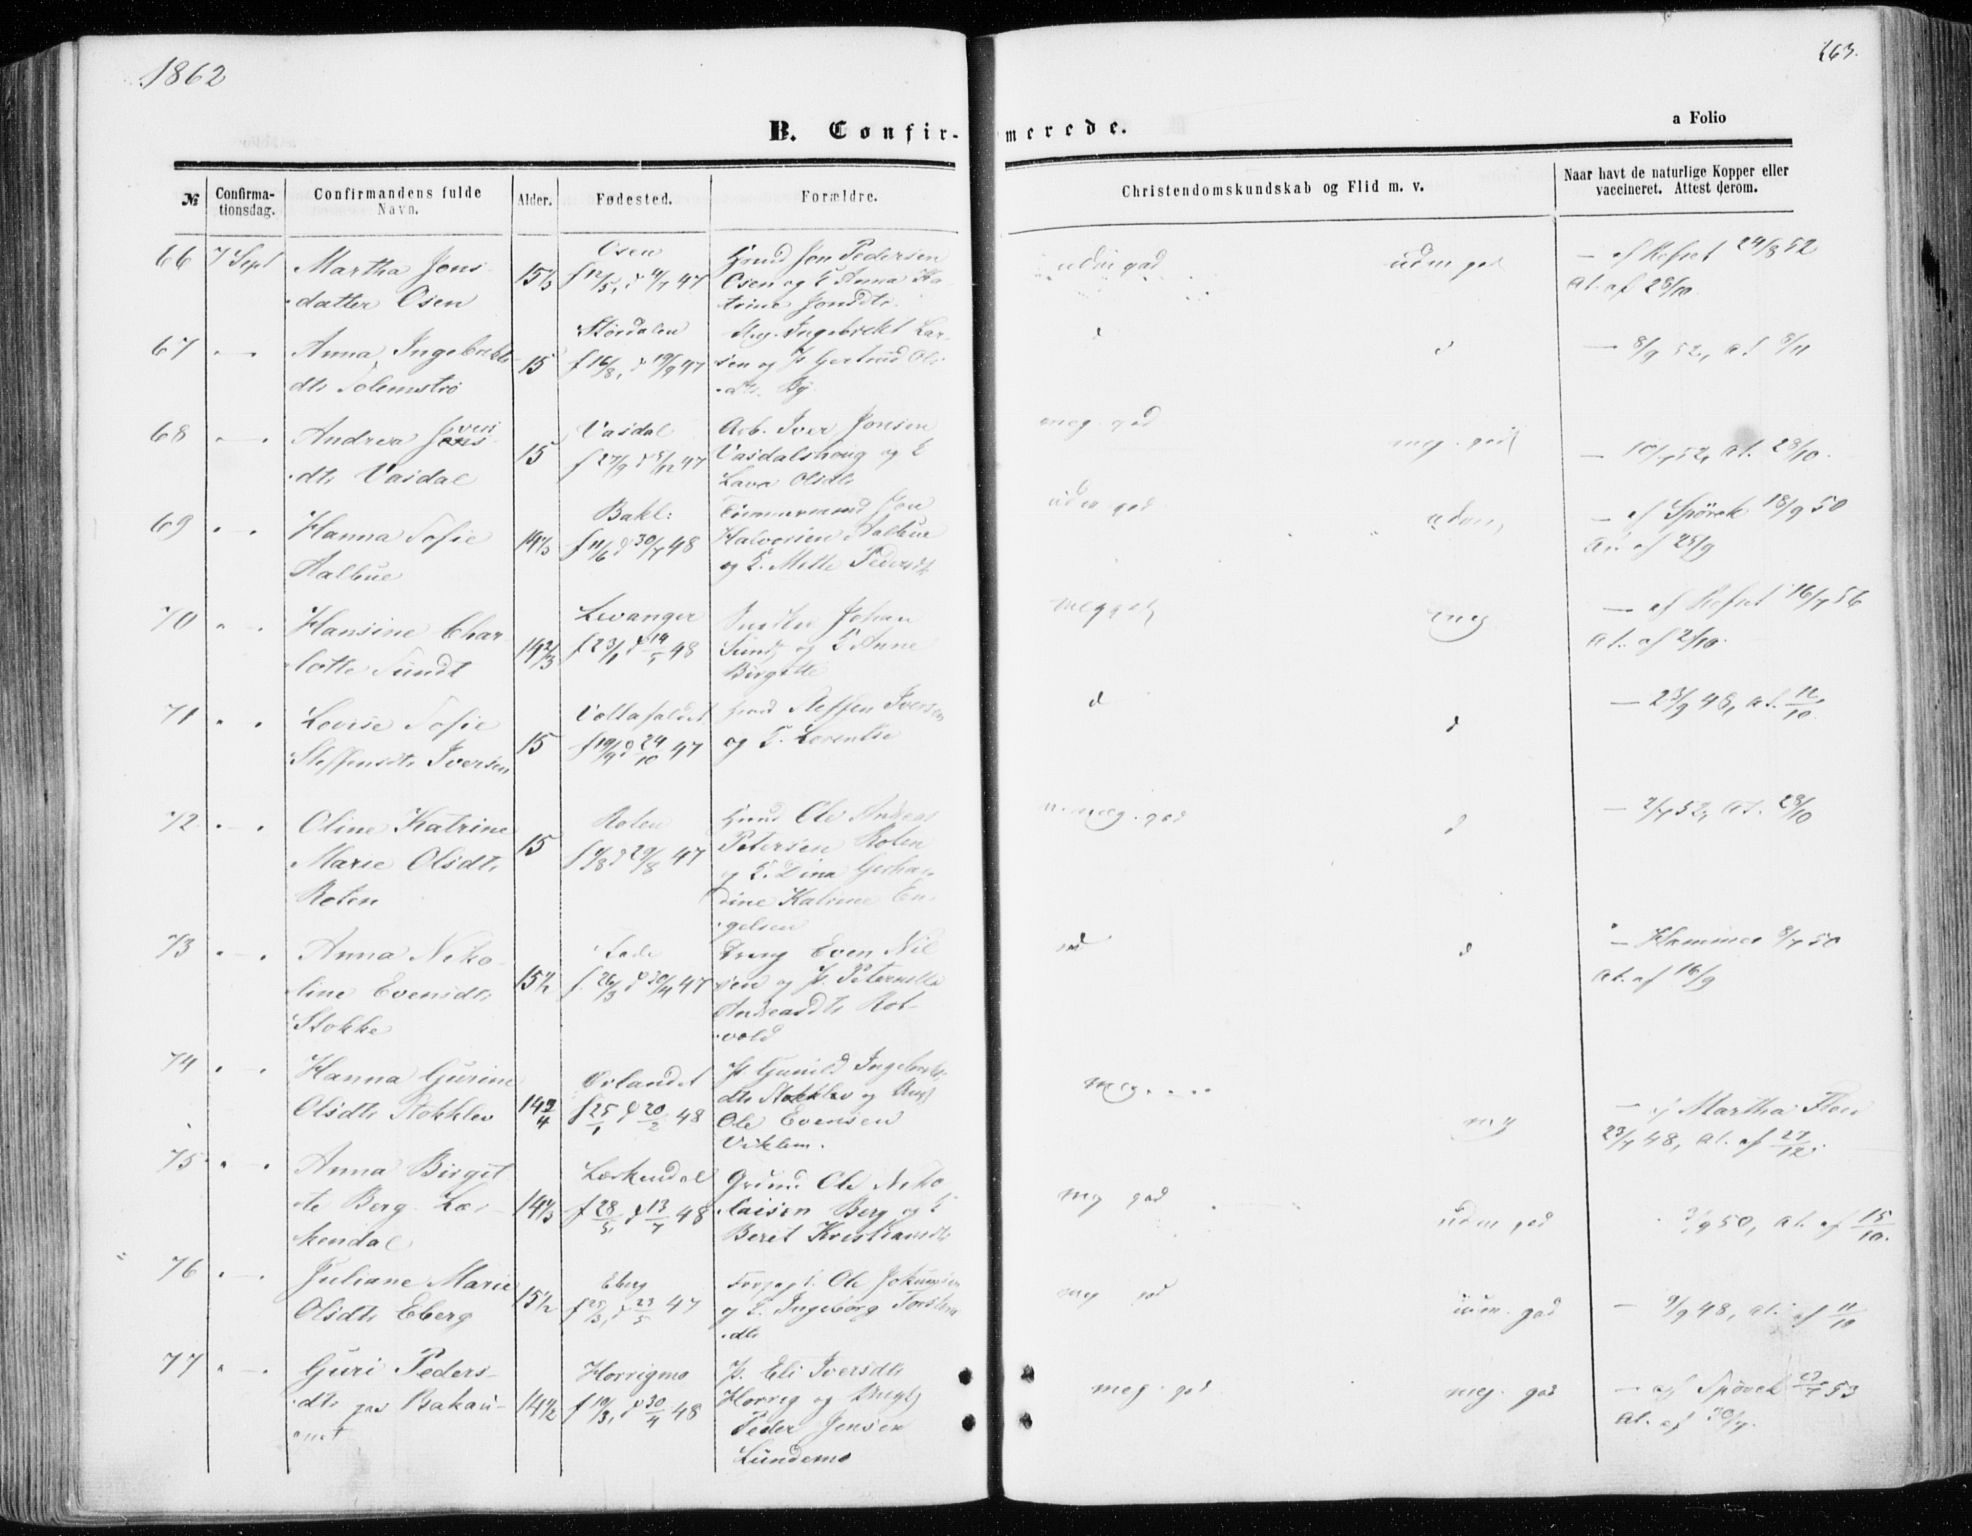 1862
163.
B. Confir-merede.
a Folio
№
Confirma-
tionsdag.
Confirmandens fulde
Navn.
Alder.
Fødested.
Forældre.
Christendomskundskab og Flid m. v.
Naar havt de naturlige Kopper eller
vaccineret. Attest derom.
66 7 Sept Martha Jons
datter Osen
15 1/3
Osen
f 12/5, d 4/7 47
Jon Pedersen
Osen og E Anna Ka
trine Jonsdtr
udm god
udm god
24/8 52
At. af 28/10
67 " — " Anna Ingebrikts
dtr
15
Størdalen
f 16/8, d 19/9 47
Ingebrikt Lar
sen og P. Gertrud Ols
dtr. By
d
d
— 8/9 52, at. 8/11
68 " — " Andrea Ivers
dtr Vasdal
15
Vasdal
f 27/9 d 5/12 47
Arb. Iver Jonsen
Vasdalshaug og E
Lava Olsdtr
meg. god
meg. god
— 10/7 52, at. 28/10.
69 " — " Hanna Sofie
Aalbue
14 1/3
Bakl:
f 11/6 d 30/7 48
Tømmermand Jon
Halvorsen Aalbue
og E. Mette Pedersdtr
udm god
udm,
— af Spörck 18/9 50
At. af 25/9
70 " — " Hansine Char
lotte Sundt
14 2/3
Levanger
f 23/1 d 14/5 48
Snedker Johan
Sundt og E Anne
Birgitte
meg god
meg
16/7 56
at. af 2/10
71 " " Lovise Sofie
Steffensdtr Iversen
15
f 19/9 d 24/10 47
Steffen Iversen
og E. Lorentse
d
d
— 25/9 48, at. 11/10.
72 " — " Oline Katrine
Marie Olsdtr
Roten
15
Roten
f 1/8 d 29/8 47
Ole Andreas
Petersen Roten
og E. Dina Gerhar-
dine Katrine En-
gelsen
meg. god
d
— 2/7 52, at. 28/10
73 " — " Anna Niko-
line Evensdtr
Stokke
15 1/2
Lade
f. 26/3 d 30/4 47
Dreng Even Nil
sen og P. Peternella
Andreasdtr Rot-
vold
d
— Hammer 8/7 50
at. af 16/9
74 " — " Hanna Gurine
Olsdtr Stokklev
14 3/4
Ørlandet
f 25/1 d 20/2 48
P. Gunild Ingebrikts
dtr Stokklev og Ungk
Ole Evensen
Viklem.
meg....
meg
— af Martha Floer
23/7 48, at. af 27/12.
75 " — " Anna Birgit
te Berg Lær-
kendal
14 1/3
Lærkendal
f 28/5, d 13/7 48
Grund Ole Niko
laisen Berg og E
Berit Kristiansdtr
meg god
udm god
7/9 50, at. af 15/10.
76 " — " Juliane Marie
Olsdtr Eberg
15 1/2
Eberg
f 25/3, d 23/5 47
Forpagt. Ole Jokumsen
og E. Ingeborg Torstens
dtr
meg god
udm. god
— 9/9 48, at. af 11/10
77 " — " Guri Peders-
dtr paa Bakau-
net
14 1/2
Horrigmo
f 19/3, d 30/4 48
P. Eli Iversdtr
Horrig og Ungk
Peder Jensen
Lundemo
meg. god
meg. god
— af Spörck 23/7 53
At. af 30/9.